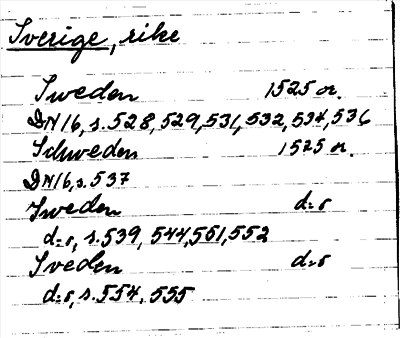 Sverige, rike
Sweden 1525 or.
DN 16, s. 528, 529, 531, 532, 534, 536
Schweden 1525 or.
DN 16, s. 537
Sweden d=s
d=s, s. 539, 544, 551, 552
Sveden d=s
d=s, s. 554, 555